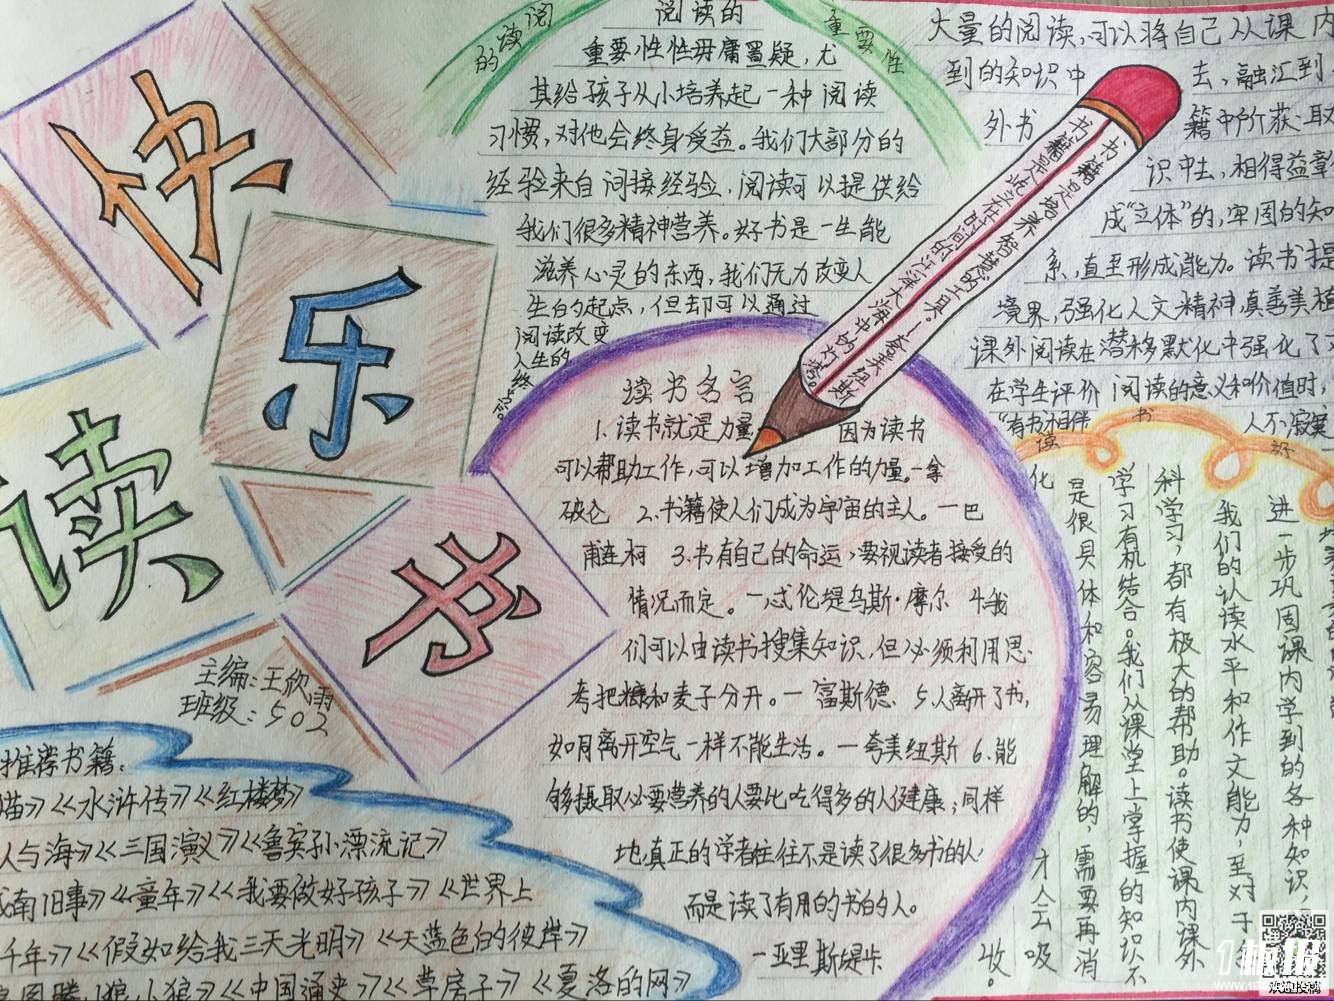 快
乐
读
书
主编:王欣雨
班级:502
阅读的
重要性
阅读的
重要性性毋庸置疑,尤
其给孩子从小培养起一种阅读
习惯,对他会终身受益。我们大部分的
经验来自间接经验,阅读可以提供给
我们很多精神营养。好书是一生能
滋养心灵的东西,我们无力改变人
生的起点,但却可以通过
阅读改变
人生的
终点。
书籍是培养智慧的工具。—夸美纽斯
书籍是屹立在时间的汪洋大海中的灯塔。
大量的阅读,可以将自己从课内
到的知识中去,融汇到
外书籍中所获取
识中去,相得益彰
成“立体”的,牢固的知
系,直至形成能力。读书提
境界,强化人文精神,真善美植
课外阅读在潜移默化中强化了
在学生评价阅读的意义和价值时,
“有书相伴人不寂寞
读书名言
1.读书就是力量因为读书
可以帮助工作,可以增加工作的力量。—拿
破仑 2.书籍使人们成为宇宙的主人。—巴
甫连柯 3.书有自己的命运,要视读者接受的
情况而定。—忒伦提乌斯·摩尔 4我
们可以由读书搜集知识,但必须利用思
考把糠和麦子分开。—富斯德. 5.人离开了书,
如同离开空气一样不能生活。—夸美纽斯 6.能
够摄取必要营养的人要比吃得多的人健康;同样
地真正的学者往往不是读了很多书的人
而是读了有用的书的人。
—亚里斯提卡
读
书
好
进一步巩固课内学到的各种知识
我们的认读水平和作文能力,至对于
科学习,都有极大的帮助。读书使课内课外
学习有机结合。我们从课堂上掌握的知识不
是很具体和容易理解的,需要再消
化
才会吸
收。
推荐书籍:
猫》《水浒传》《红楼梦》
人与海》《三国演义》《鲁宾孙漂流记》
城南旧事》《童年》《我要做好孩子》《世界上
千年》《假如给我三天光明》《天蓝色的彼岸》
狼图腾,小狼,小狼》《中国通史》《草房子》《夏洛的网》
1板报
欢迎投稿